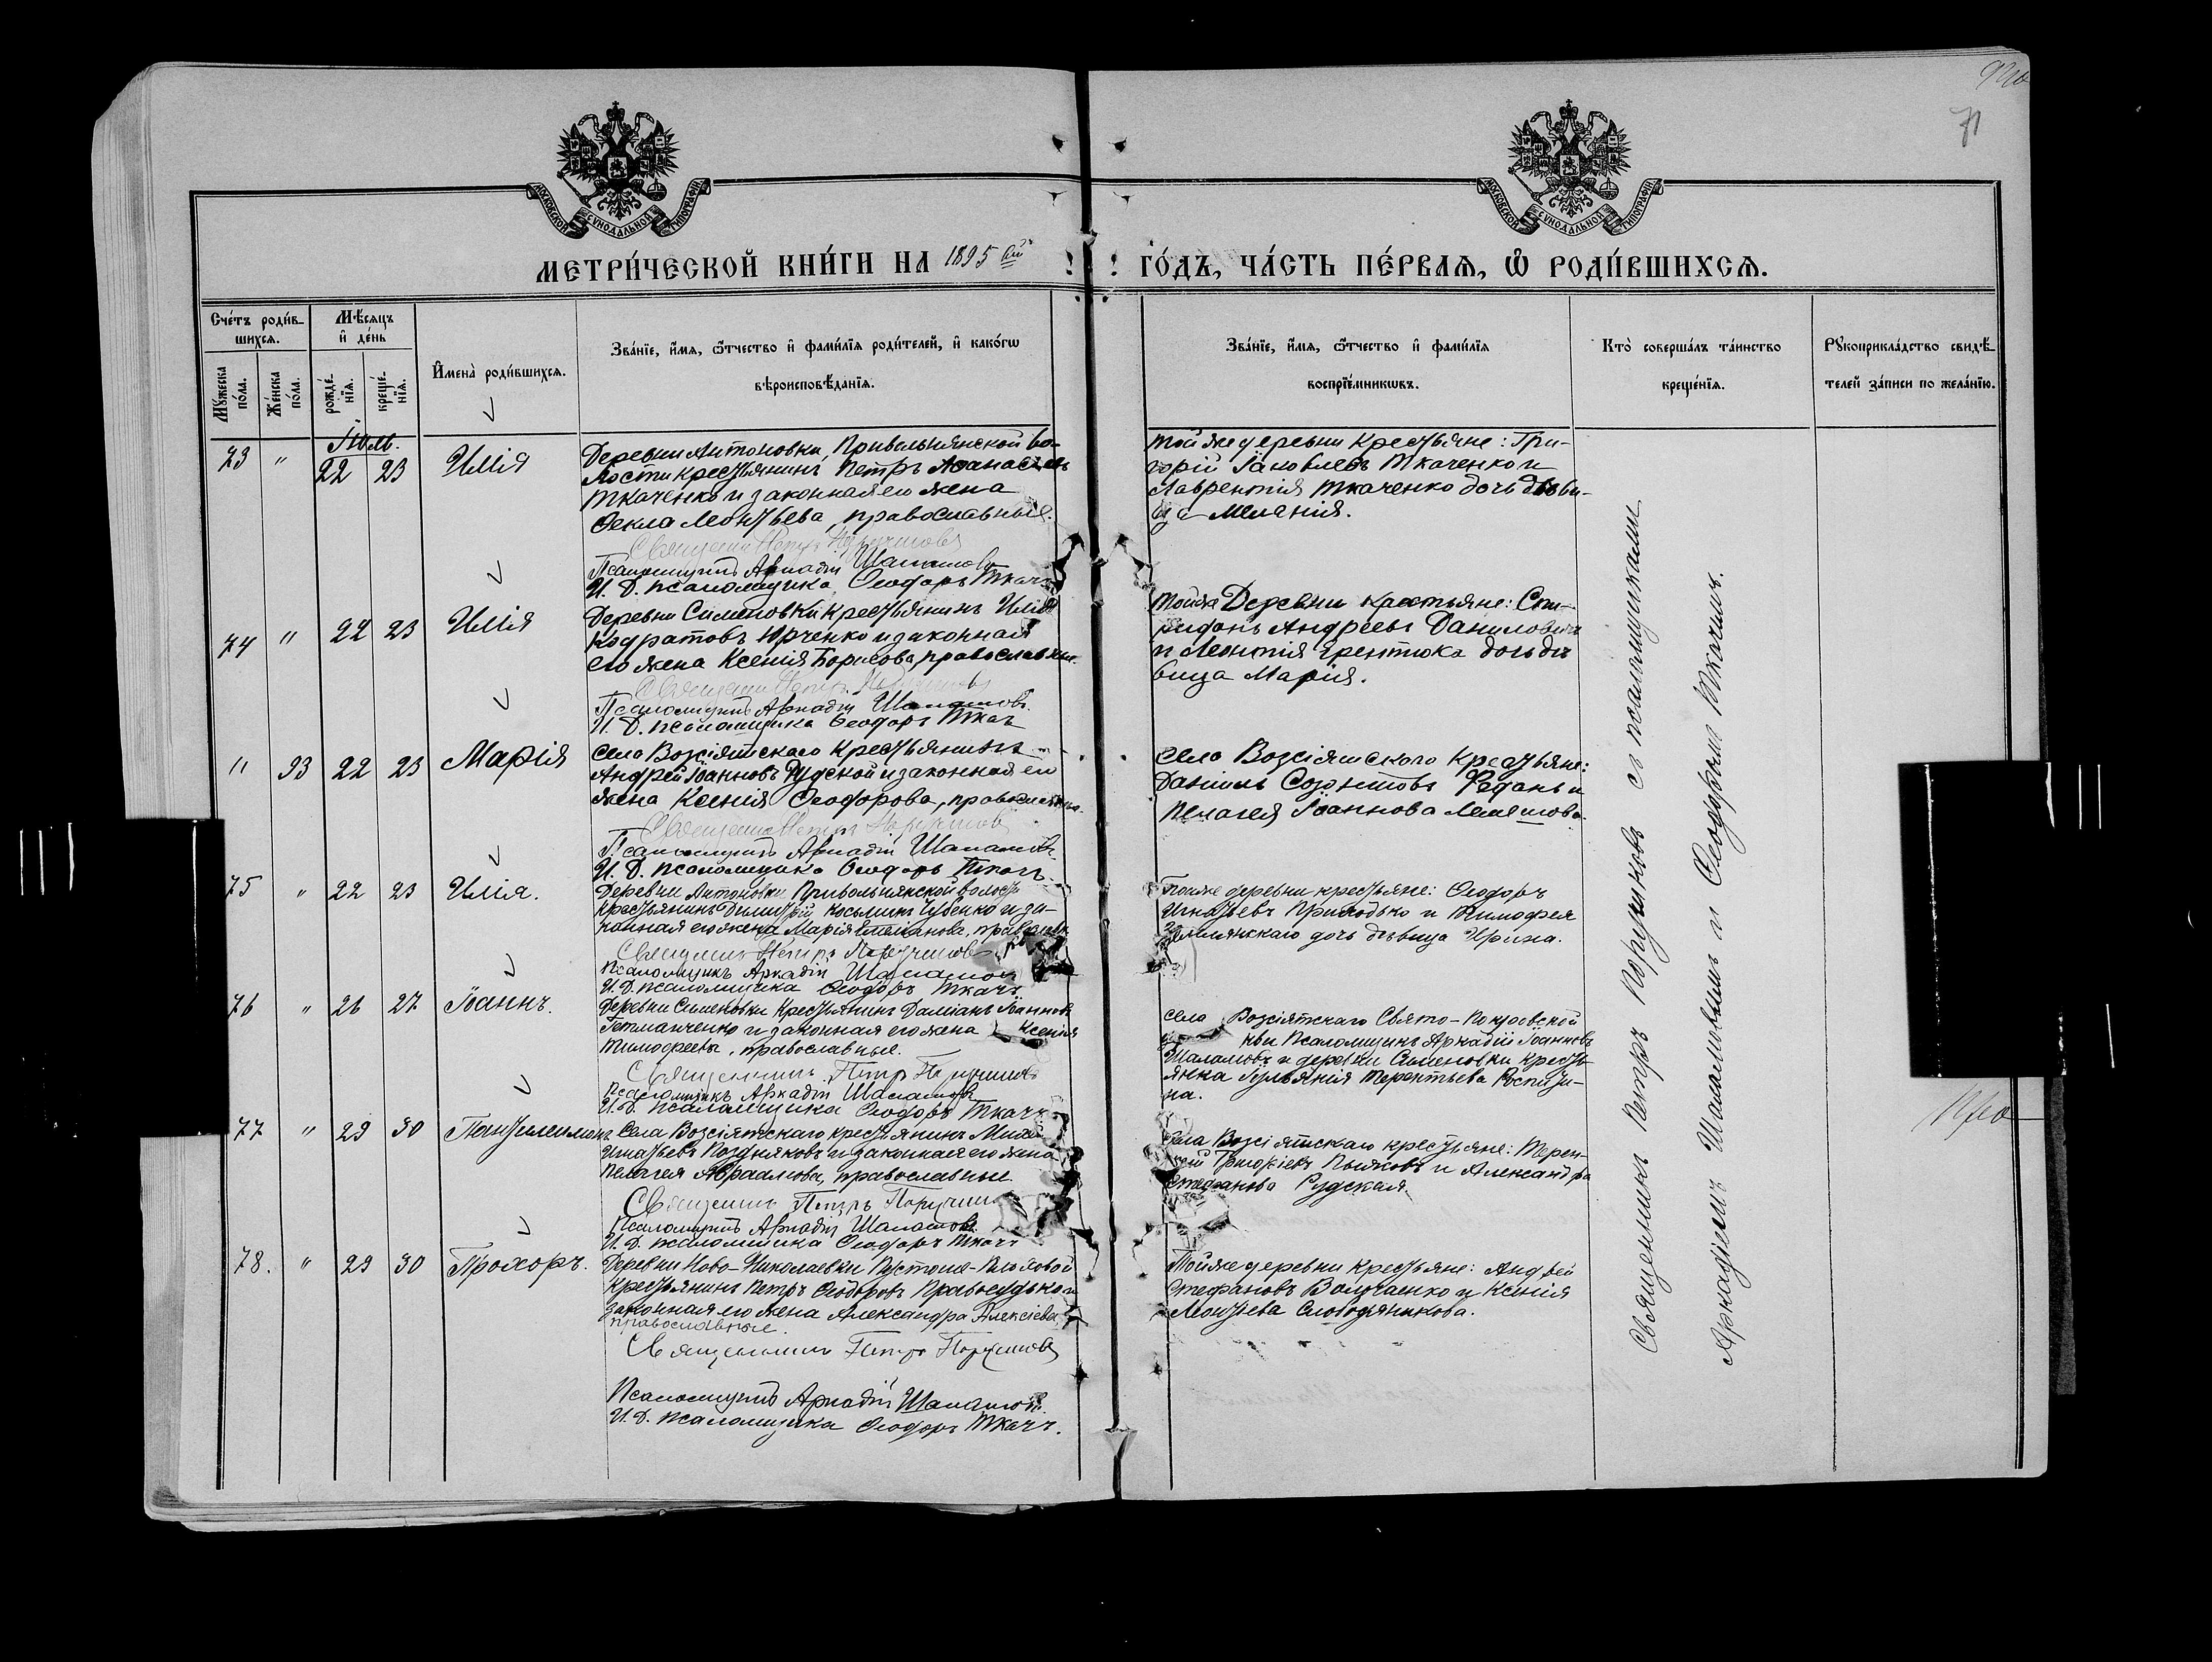 71
МОСКОВСКОЙ СУНОДАЛЬНОЙ ТИПОГРАФІИ
МОСКОВСКОЙ СУНОДАЛЬНОЙ ТИПОГРАФІИ
МЕТРИ́ЧЕСКОЙ КНИ́ГИ НА 1895 ый ГО́ДЪ, ЧА́СТЬ ПЕ́РВАЯ, Ѡ РОДИ́ВШИХСЯ.
Сче́тъ роди́в-
шихся.
Мꙋ́жеска по́ла.
Же́нска по́ла.
Мѣ́сяцъ
и҆ де́нь
рожде́-нїя.
креще́-нїя.
И҆мена̀ роди́вшихся.
Зва́нїе, и҆́мя, ѻ҆́тчество и҆ фами́лїя роди́телей, и҆ како́гѡ
вѣроисповѣ́данїя.
Зва́нїе, и҆́мя, ѻ҆́тчество и҆ фами́лїя
воспрїе́мникѡвъ.
Кто̀ соверша́лъ та́инство
креще́нїя.
Рꙋкоприкла́дство свидѣ́-
телей за́писи по жела́нїю.
Іюль.
73 " 22 23 Илія
Деревни Антоновки, Привольнянской во-
лости крестьянинъ Петръ Аѳанасіевъ
Ткаченко и законная его жена
Ѳекла Леонтьева, православные.
Священникъ Петръ Поручиковъ
Псаломщикъ Аркадій Шаламовъ
И. Д. псаломщика Ѳеодоръ Ткачъ
Той же деревни крестьяне: Гри-
горій Іаковлевъ Ткаченко и
Лаврентія Ткаченко дочь дѣви-
ца Меланія.
74 " 22 23 Илія
Деревни Симоновки крестьянинъ Илія
Кодратовъ Юрченко и законная
его жена Ксенія Борисова, православные.
Священникъ Петръ Поручиковъ
Псаломщикъ Аркадій Шаламовъ.
И. Д. псаломщика Ѳеодоръ Ткачъ
Той же Деревни крестьяне: Спи-
ридонъ Андреевъ Даниловичъ
и Леонтія дочь дѣ
вица Марія.
" 93 22 23 Марія
Села Возсіятскаго крестьянинъ
Андрей Іоанновъ Рудской и законная его
жена Ксенія Ѳеодорова, православные.
Священникъ Петръ Поручиковъ
Псаломщикъ Аркадій Шаламовъ.
И. Д. псаломщика Ѳеодоръ Ткачъ.
Села Возсіятскаго крестьяне:
Даніилъ Созонтовъ и
Пелагея Іоаннова
75 " 22 23 Илія.
Деревни Антоновки Привольнянской волости
крестьянинъ Димитрій Косьминъ Чубенко и за-
конная его жена Марія Стефанова, православн.
Священникъ Петръ Поручиковъ
Псаломщикъ Аркадій Шаламовъ
И. Д. псаломщика Ѳеодоръ Ткачъ
Той же деревни крестьяне: Ѳеодоръ
Игнатьевъ Приходько и Тимофея
дочь дѣвица Ирина.
76 " 26 27 Іоаннъ.
Деревни Симоновки крестьянинъ Даміанъ Іоанновъ
Гетманченко и законная его жена Ксенія
Тимофеева, православные.
Священникъ Петръ Поручиковъ
Псаломщикъ Аркадій Шаламовъ
И. Д. псаломщика Ѳеодоръ Ткачъ
Села Возсіятскаго Свято-Покровской
кви Псаломщикъ Аркадій Іоанновъ
Шаламовъ и деревни Симоновки кресть-
янка Іуліанія Терентьева
на.
77 " 29 30 Пантелеимонъ
Села Возсіятскаго крестьянинъ
Игнатьевъ Поздняковъ и законная его жена
Пелагея Авраамова, православные
Священникъ Петръ Поручиковъ
Псаломщикъ Аркадій Шаламовъ.
И. Д. псаломщика Ѳеодоръ Ткачъ
Села Возсіятскаго крестьяне: Терен-
тій Григоріевъ и Александра
Стефанова Рудская.
78. " 29 30 Прохоръ.
Деревни Ново-Николаевки
крестьянинъ Петръ Ѳеодоровъ Правосудько и
законная его жена Александра Алексіева,
православные.
Священникъ Петръ Поручиковъ
Псаломщикъ Аркадій Шаламовъ.
И. Д. псаломщика Ѳеодоръ Ткачъ.
Той же деревни крестьяне: Андрей
Стефановъ и Ксенія
Леонтіева Слободяникова.
Священникъ Петръ Поручиковъ съ псаломщиками
Аркадіемъ Шаламовымъ и Ѳеодоромъ Ткачимъ.